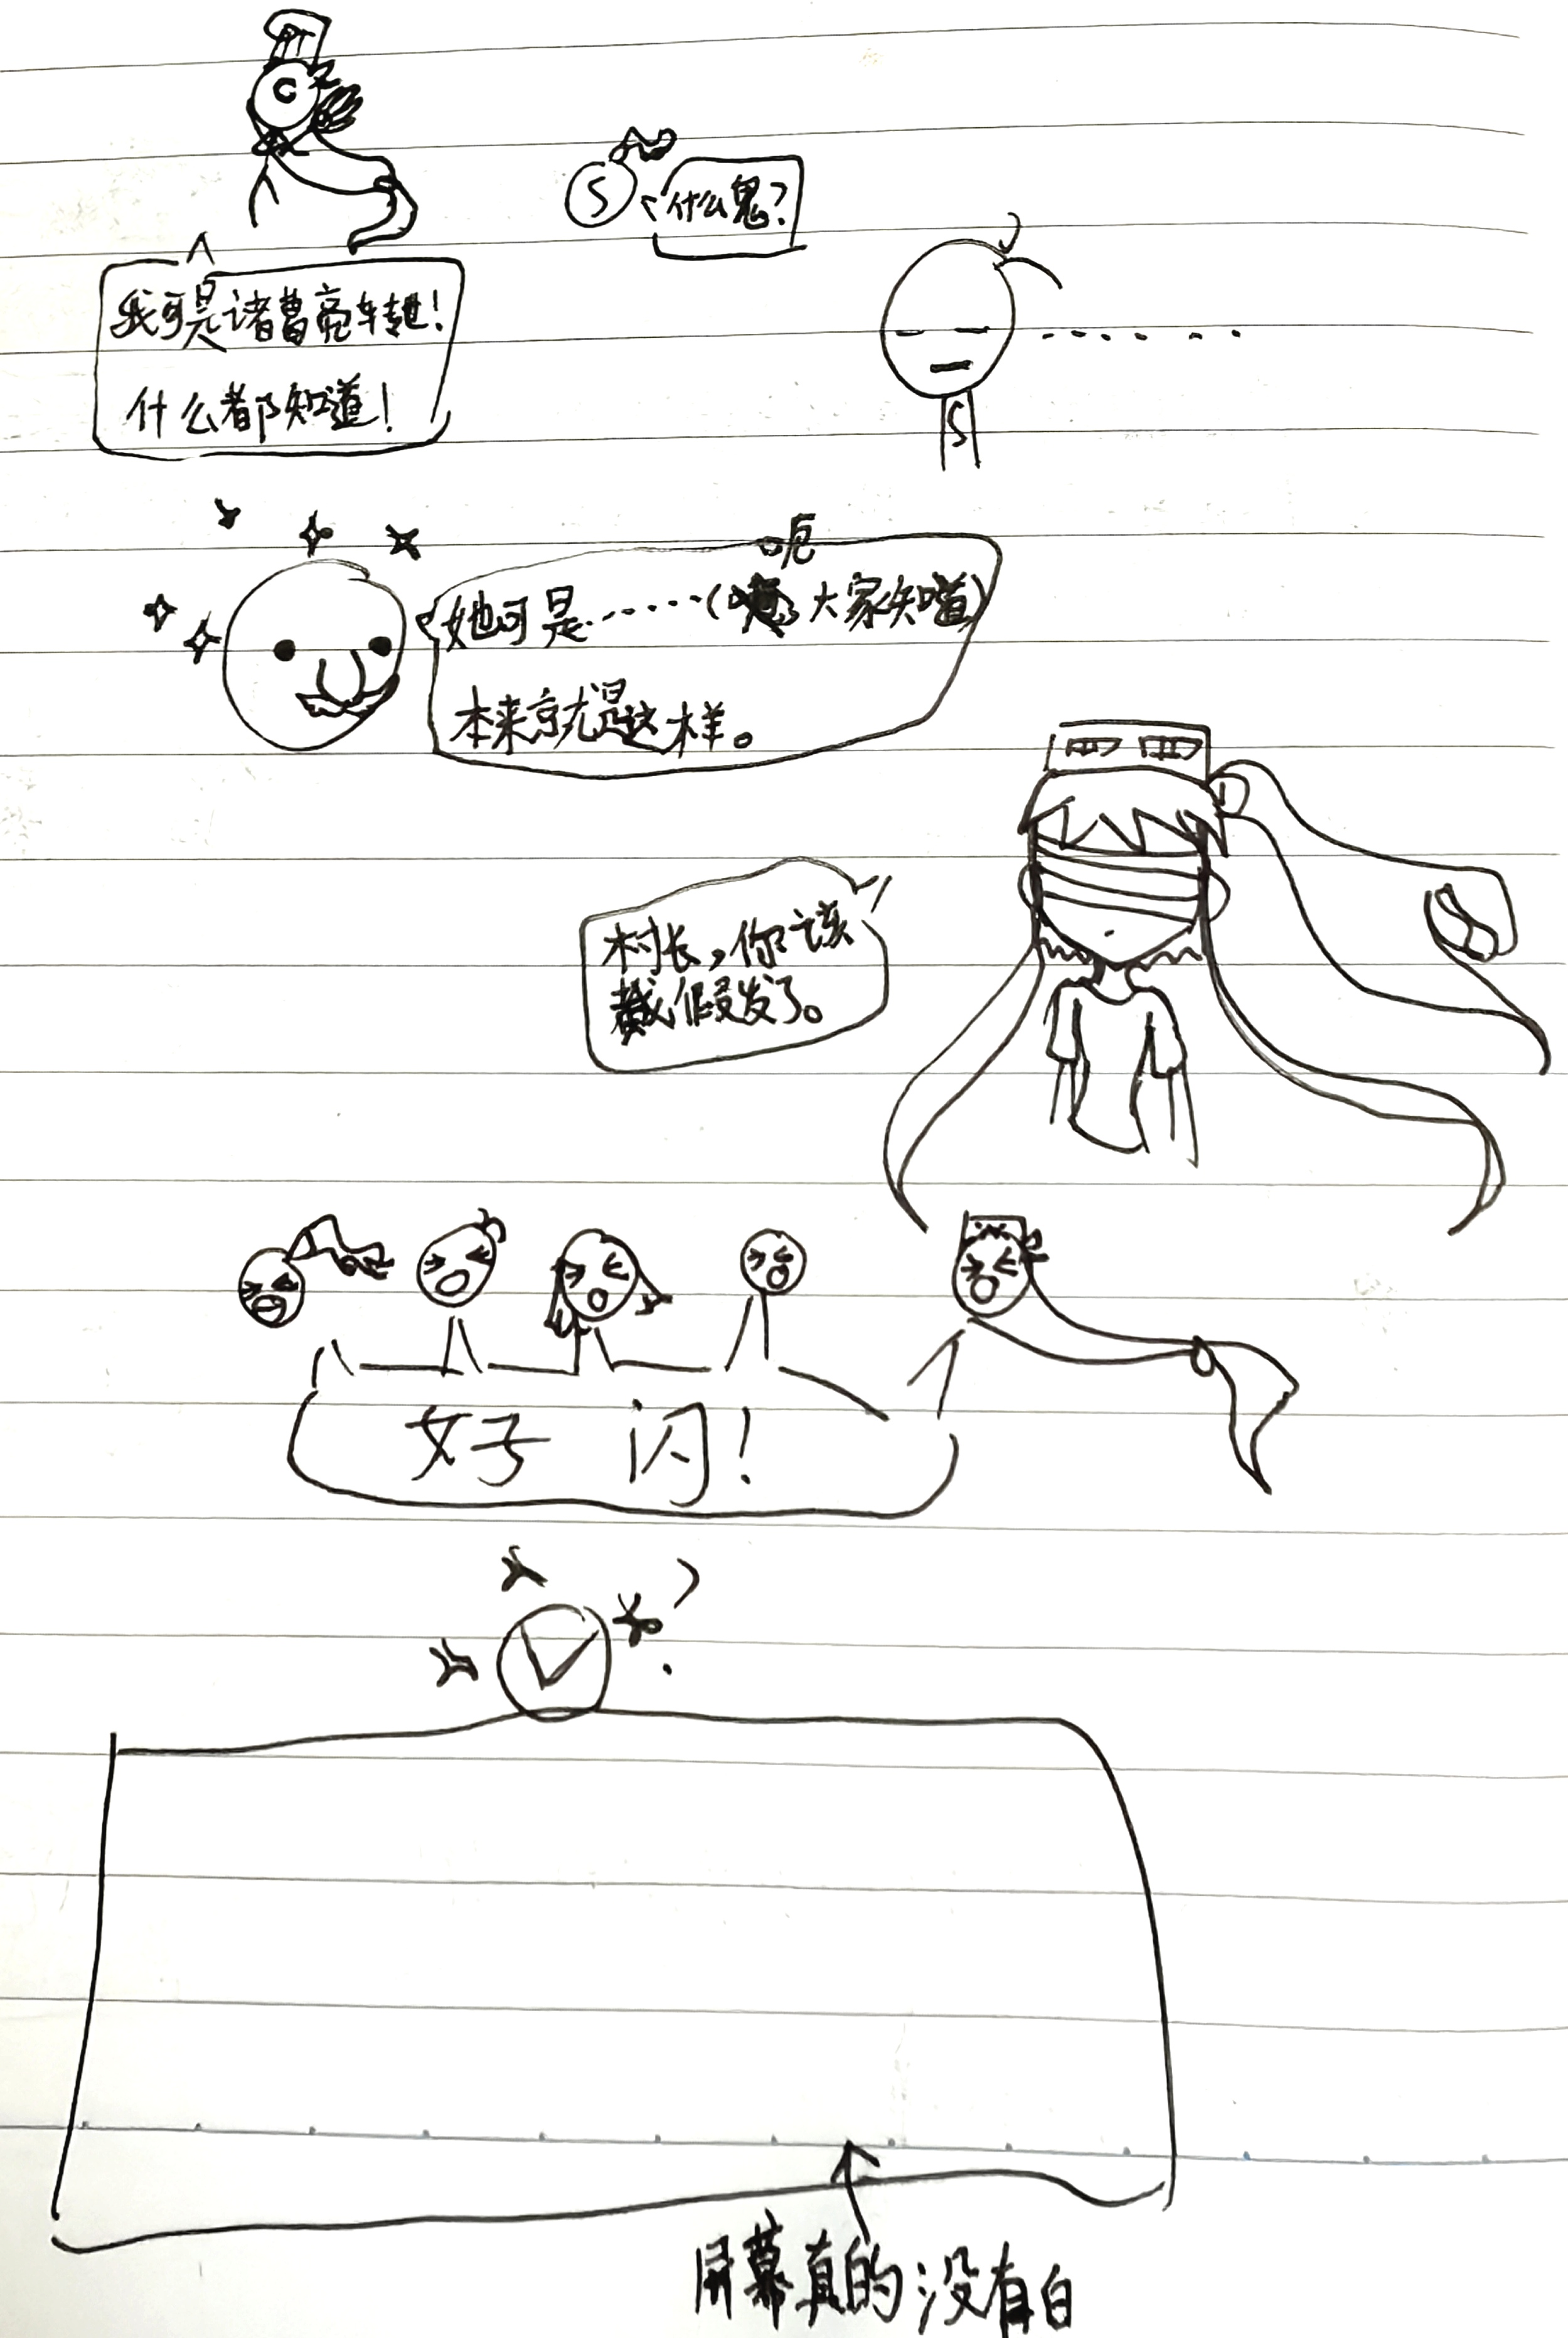 C
S
什么鬼?
我可是诸曹亮转世!
什么都知道!
S
呃
她可是……(大家知道)
本来就是这样。
村长,你该
戴假发了。
好 闪!
?
屏幕真的没有白